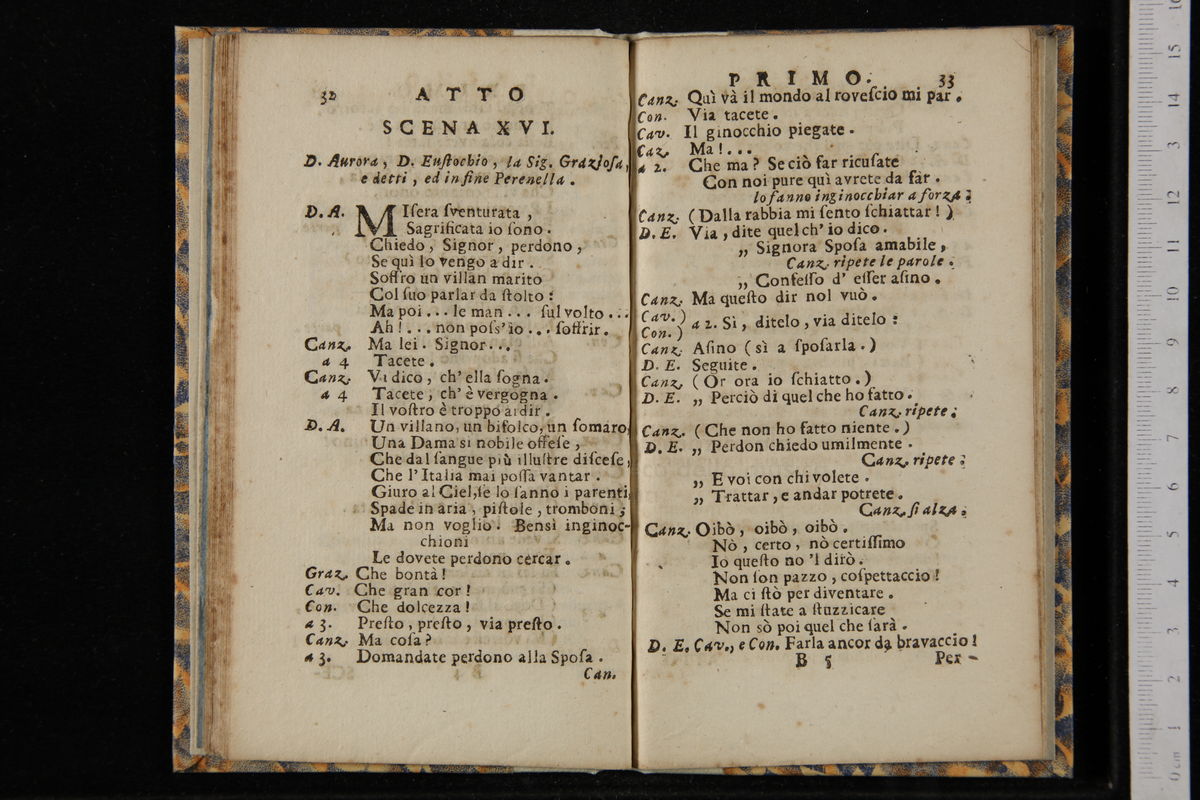 32 ATTO
SCENA XVI.
D. Aurora, D. Euſtochio, la Sig. Grazioſa,
e detti, ed in fine Perenella.
D. A. MIſera ſventurata,
Sagrificata io ſono.
Chiedo, Signor, perdono,
Se quì lo vengo a dir.
Soffro un villan marito
Col ſuo parlar da ſtolto:
Ma poi... le man... ſul volto...
Ah!... non poſs'io... ſoffrir.
Canz. Ma lei. Signor...
a 4 Tacete.
Canz. Vi dico, ch'ella ſogna.
a 4 Tacete, ch'è vergogna.
Il voſtro è troppo ardir.
D. A. Un villano, un bifolco, un ſomaro
Una Dama sì nobile offeſe,
Che dal ſangue più illuſtre diſceſe,
Che l'Italia mai poſſa vantar.
Giuro al Ciel, ſe lo ſanno i parenti
Spade in aria, piſtole, tromboni;
Ma non voglio. Bensì inginoc-
chioni
Le dovete perdono cercar.
Graz. Che bontà!
Cav. Che gran cor!
Con. Che dolcezza!
a 3. Preſto, preſto, via preſto.
Canz. Ma coſa?
a 3. Domandate perdono alla Spoſa.
Can.
PRIMO. 33
Canz. Quì và il mondo al roveſcio mi par.
Con. Via tacete.
Cav. Il ginocchio piegate.
Caz. Ma!...
a 2. Che ma? Se ciò far ricuſate
Con noi pure quì avrete da far.
lo fanno inginocchiar a forza;
Canz. (Dalla rabbia mi ſento ſchiattar!)
D. E. Via, dite quel ch'io dico.
„ Signora Spoſa amabile,
Canz. ripete le parole.
„ Confeſſo d'eſſer aſino.
Canz. Ma queſto dir nol vuò.
Cav.)
a 2. Sì, ditelo, via ditelo:
Con.)
Canz. Aſino (sì a ſpoſarla.)
D. E. Seguite.
Canz. (Or ora io ſchiatto.)
D. E. „ Perciò di quel che ho fatto.
Canz. ripete;
Canz. (Che non ho fatto niente.)
D. E. „ Perdon chiedo umilmente.
Canz. ripete;
„ E voi con chi volete.
„ Trattar, e andar potrete.
Canz. ſi alza;
Canz. Oibò, oibò, oibò.
Nò, certo, nò certiſſimo
Io queſto no 'l dirò.
Non ſon pazzo, coſpettaccio!
Ma ci ſtò per diventare.
Se mi ſtate a ſtuzzicare
Non sò poi quel che ſarà.
D. E. Cav., e Con. Farla ancor da bravaccio!
B 5 Per-